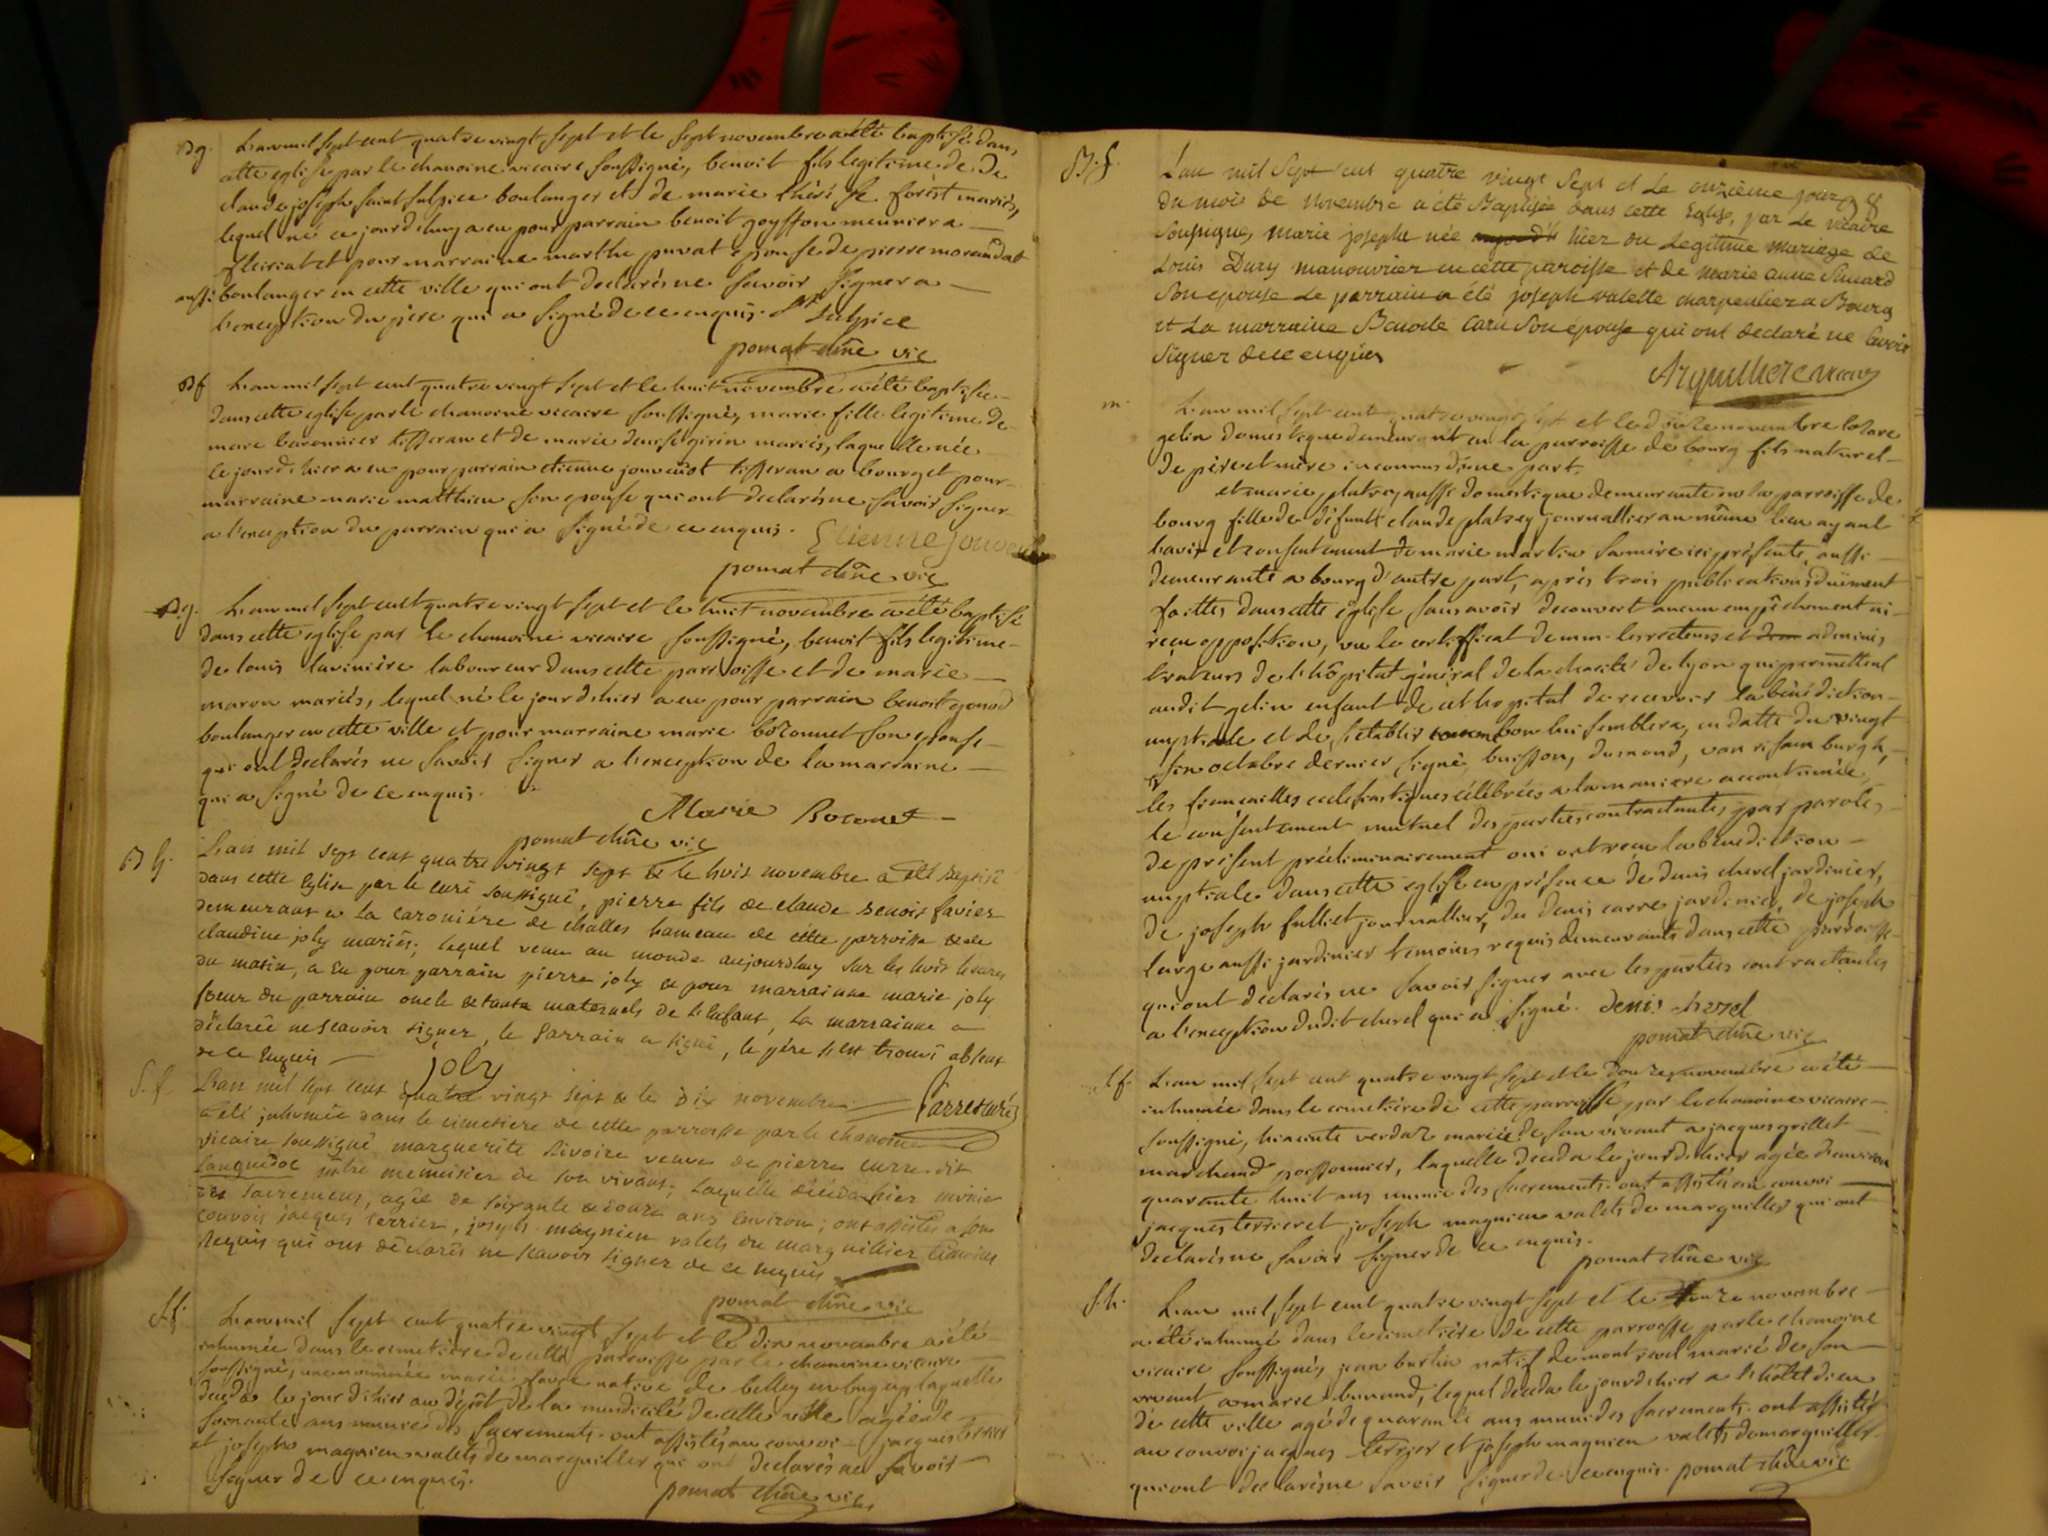 Bg. L'an mil sept cent quatre vingt sept et le sept novembre a été baptisé dans
cette eglise par le chanoine vicaire soussigné, benoit fils legitime de De
claude joseph saint sulpice boulanger et de marie thérése forest mariés,
lequel né ce jourd'huy a eu pour parrain benoit goyffon meunier a
fleiriat et pour marraine marthe puvat epouse de pierre morandat
aussi boulanger en cette ville qui ont declarés ne savoir signer a
l'exception du père qui a signé de ce enquis. St Sulpice
pomat chne vic
Bf L'an mil sept cent quatre vingt sept et le huit novembre a été baptisée
dans cette eglise par le chanoine vicaire soussigné, marie fille legitime de
marc baronnier tisseran et de marie denise girin mariés, laquelle née
le jour d'hier a eu pour parrain etienne jouvenot tisseran a bourg et pour
marraine marie matthieu son epouse qui ont declarés ne savoir signer
a l'exception du parrain qui a signé de ce enquis. Etienne jouve
pomat chne vic
Bg. L'an mil sept cent quatre vingt sept et le huit novembre a été baptisé
dans cette eglise par le chanoine vicaire soussigné, benoit fils legitime
de louis laviniére laboureur dans cette parroisse et de marie
maron mariés, lequel né le jour d'hier a eu pour parrain benoit gonod
boulanger en cette ville et pour marraine marie boconnet son epouse
qui ont declarés ne savoir signer a l'exception de la marraine
qui a signé de ce enquis.
Marie Boconet
pomat chne vic
B g. L'an mil sept cent quatre vingt sept & le huit novembre a été baptisé
dans cette Eglise par le curé soussigné, pierre fils de claude benoit favier
demeurant a la caronière de challes hameau de cette parroisse & de
claudine joly mariés; lequel venu au monde aujourdhuy sur les huit heures
du matin, a eu pour parrain pierre joly & pour marrainne marie joly
soeur du parrain oncle & tante maternels de l'Enfant, la marrainne a
déclarée ne scavoir signer, le parrain a signé, le père s'est trouvé absent
de ce Enquis joly
S. f. L'an mil sept cent quatre vingt sept & le dix novembre
a eté inhumée dans le cimetiere de cette parroisse par le chanoine
vicaire soussigné marguerite Rivoire veuve de pierre curre dit
Languedoc mtre menuisier de son vivant; laquelle décéda hier munie
des sacremens, agée de soixante & douze ans Environ; ont assistés a son
convoi jacques terrier, joseph magnien valets de marguillier témoins
Requis qui ont déclarés ne scavoir signer de ce Enquis
pomat chne vic
S.f. L'an mil sept cent quatre vingt sept et le dix novembre a été
inhumée dans le cimetière de cette parroisse par le chanoine vicaire
soussigné, une nommée marie favre native de belley en bugey, laquelle
déceda le jour d'hier au dépôt de la mendicité de cette ville agée de
soixante ans munie des sacrements. ont assistés au convoi jacques terrier
et joseph magnien valets de marguiller qui ont declarés ne savoir
signer de ce enquis.
pomat chne vic
B.f. L'an mil Sept cent quatre vingt Sept et Le onzième jour
du mois de Novembre a été Baptisée dans cette Eglise, par Le vicaire
Soussigné, marie josephe née hier du Legitime mariage de
Louis Dury manouvrier en cette paroisse et de marie anne
Son epouse Le parrain a été joseph valette charpentier a Bourg
et La marraine Benoite Son épouse qui ont declaré ne Savoir
Signer de ce enquis
m. L'an mil sept cent quatre vingt sept et le novembre lazare
gelin domestique demeurant en la parroisse de bourg fils naturel
de père et mère inconnus d'une part.
et marie platrey aussi domestique demeurante en la parroisse de
bourg fille de défunt claude platrey journallier au même lieu ayant
l'avis et consentement de marie martin sa mère ici présente, aussi
demeurante a bourg d'autre part, après trois publications duëment
faittes dans cette église sans avoir decouvert aucun empêchement ni
reçu opposition, vu le certifficat de mrs. les recteurs et adminis
trateurs de l'hôpital général de la charité de lyon qui permettent
audit gelin enfant de cet hopital de recevoir la bénédiction
nuptiale et de s'etablir bon lui semblera, en datte du vingt
six octobre dernier signé, buisson, dumond, van risamburgh,
les fiançailles ecclesiastiques célébrées a la manière accoutumée,
le consentement mutuel des parties contractantes par paroles
de présent préeliminairement oui ont reçu la bénédiction
nuptiale dans cette eglise en présence de denis chevrel jardinier,
de joseph fulliet journallier, de denis carre jardinier, de joseph
large aussi jardinier temoins requis demeurants dans cette parroisse
qui ont declarés ne savoir signer avec les parties contractantes
a l'exception dudit chevrel qui a signé. denis chevrel
pomat chne vic
S.f. L'an mil sept cent quatre vingt sept et le douze novembre a été
inhumée dans le cimetière de cette parroisse par le chanoine vicaire
soussigné, hiacinte verdaz mariée de son vivant a jacques grillet
marchand poissonnier, laquelle deceda le jour d'hier agée d'environ
quarante huit ans munie des sacrements. ont assistés au convoi
jacques terrier et joseph magnien valets de marguiller qui ont
declarés ne savoir signer de ce enquis.
pomat chne vic
S.h. L'an mil sept cent quatre vingt sept et le douze novembre
a été inhumé dans le cimetière de cette parroisse par le chanoine
vicaire soussigné, jean burtin natif de montreval marié de son
vivant a marie lequel deceda le jour d'hier a l'hôtel dieu
de cette ville agé de quarante ans muni des sacrements. ont assistés
au convoi jacques terrier et joseph magnien valets de marguiller
qui ont declarés ne savoir signer de ce enquis. pomat chne vic